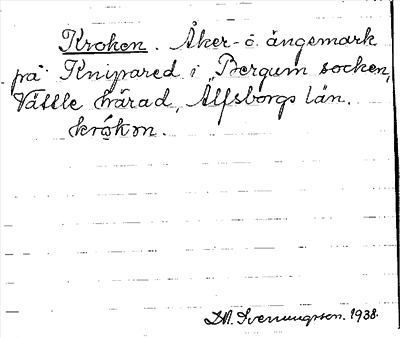 Kroken. Åker- o. ängsmark
på Knipared i Bergum socken,
Vättle härad, Älfsborgs län.
krókon.
D.A. Svenungsson. 1938.